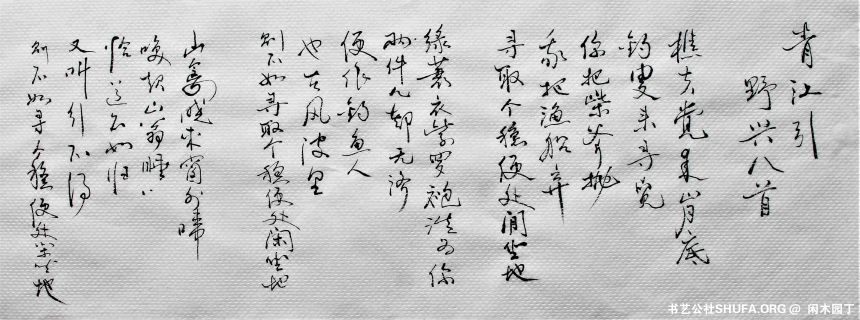 青江引
野兴八首
樵夫觉来山月底
钓叟来寻觅
你把柴斧抛
我把渔船弃
寻取个稳便处闲坐地
绿蓑衣紫罗袍谁为你
两件儿都无济
便作钓鱼人
也在风波里
则不如寻取个稳便处闲坐地
山禽晓来窗外啼
唤起山翁睡
恰道不如归
又叫行不得
则不如寻个稳便处闲坐地
书艺公社SHUFA.ORG @ 闲木园丁